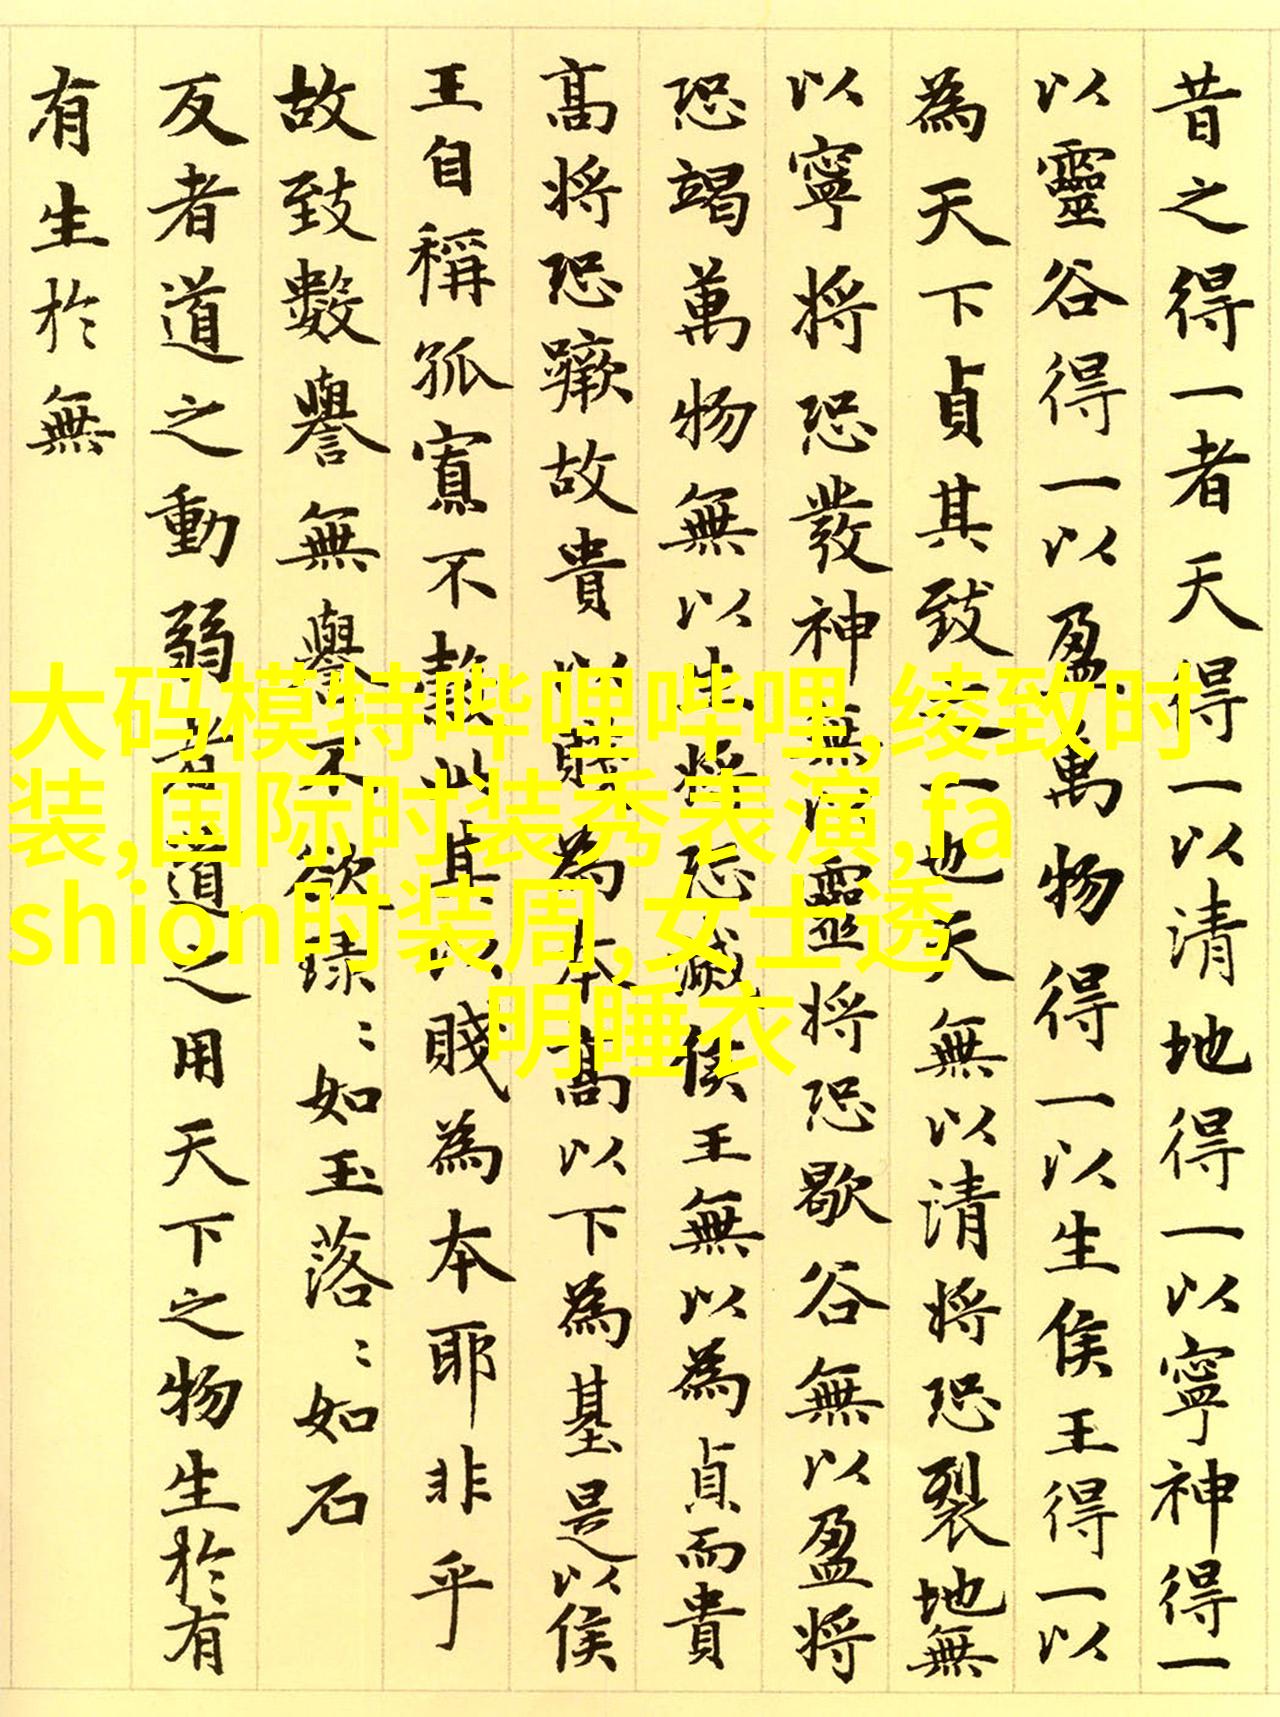 昔之得一者天得一以清地得一以寧神得一
以靈谷得一以盈萬物得一以生侯王得一以
為天下貞其致之一也天無以清將恐裂地無
以寧將恐發神無以靈將恐歇谷無以盈將
恐竭萬物無以生將恐滅侯王無以為貞而貴
高將恐蹶故貴以賤為本高以下為基是以侯
王自稱孤寡不穀此其以賤為本耶非乎
故致數譽無譽不欲琭〻如玉落〻如石
反者道之動弱者道之用天下之物生於有
有生於無
大码模特哔哩哔哩,绫致时
装,国际时装秀表演,fa
shion时装周,女士透
明睡衣